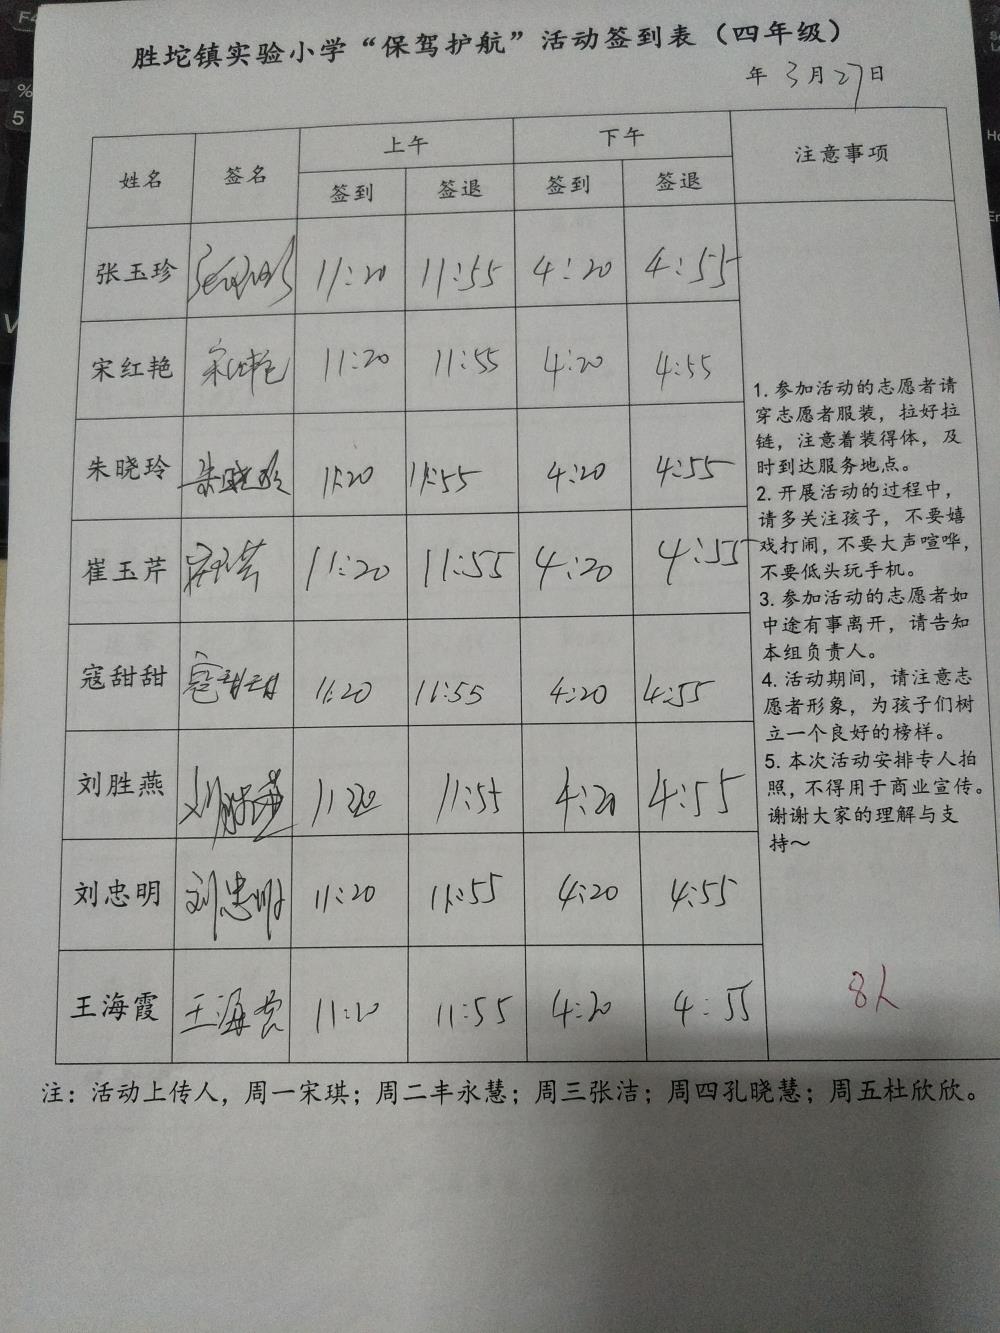 胜坨镇实验小学“保驾护航”活动签到表（四年级）
年 3月27日
姓名 签名 上午 下午 注意事项
签到 签退 签到 签退
张玉珍 张玉珍 11:20 11:55 4:20 4:55
宋红艳 宋红艳 11:20 11:55 4:20 4:55
朱晓玲 朱晓玲 11:20 11:55 4:20 4:55
崔玉芹 崔玉芹 11:20 11:55 4:20 4:55
寇甜甜 寇甜甜 11:20 11:55 4:20 4:55
刘胜燕 刘胜燕 11:20 11:55 4:20 4:55
刘忠明 刘忠明 11:20 11:55 4:20 4:55
王海霞 王海霞 11:20 11:55 4:20 4:55
1. 参加活动的志愿者请
穿志愿者服装，拉好拉
链，注意着装得体，及
时到达服务地点。
2. 开展活动的过程中，
请多关注孩子，不要嬉
戏打闹，不要大声喧哗，
不要低头玩手机。
3. 参加活动的志愿者如
中途有事离开，请告知
本组负责人。
4. 活动期间，请注意志
愿者形象，为孩子们树
立一个良好的榜样。
5. 本次活动安排专人拍
照，不得用于商业宣传。
谢谢大家的理解与支
持～
8人
注：活动上传人，周一宋琪；周二丰永慧；周三张洁；周四孔晓慧；周五杜欣欣。